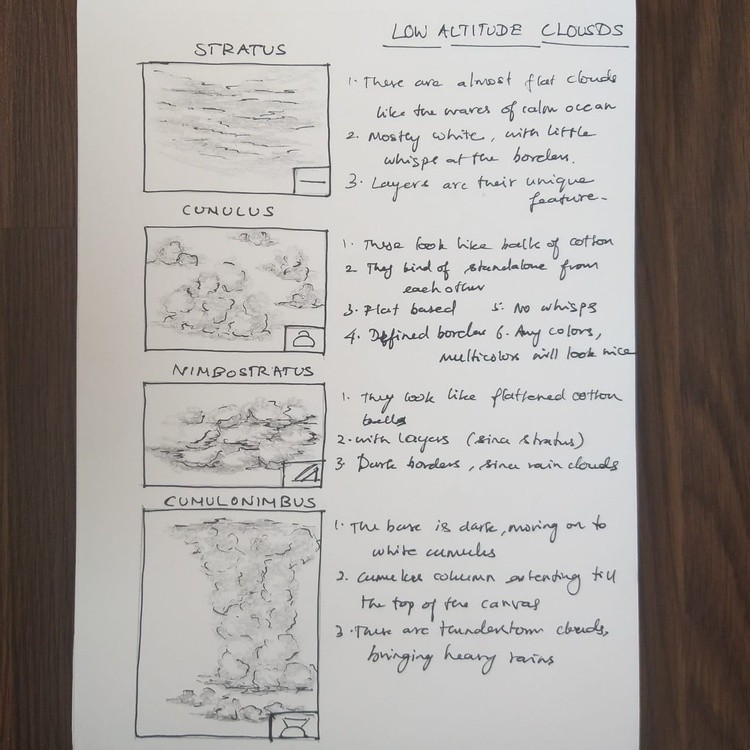 LOW ALTITUDE CLOUSDS
STRATUS
1. These are almost flat clouds
like the waves of calm ocean
2. Mostly white, with little
whisps at the borders.
3. Layers are their unique
feature.
CUNULUS
1. These look like balls of cotton
2 They kind of standalone from
each other
3. Flat based 5. No whisps
4. Defined border 6. Any colors,
multicolors will look nice
NIMBOSTRATUS
1. They look like flattened cotton
balls
2. with layers (sinc stratus)
3. Dark borders, sinc rain clouds
CUMULONIMBUS
1. The base is dark, moving on to
white cumulus
2. Cumulus column extenting till
the top of the canvas
3. These are thunderstorm clouds,
bringing heavy rains